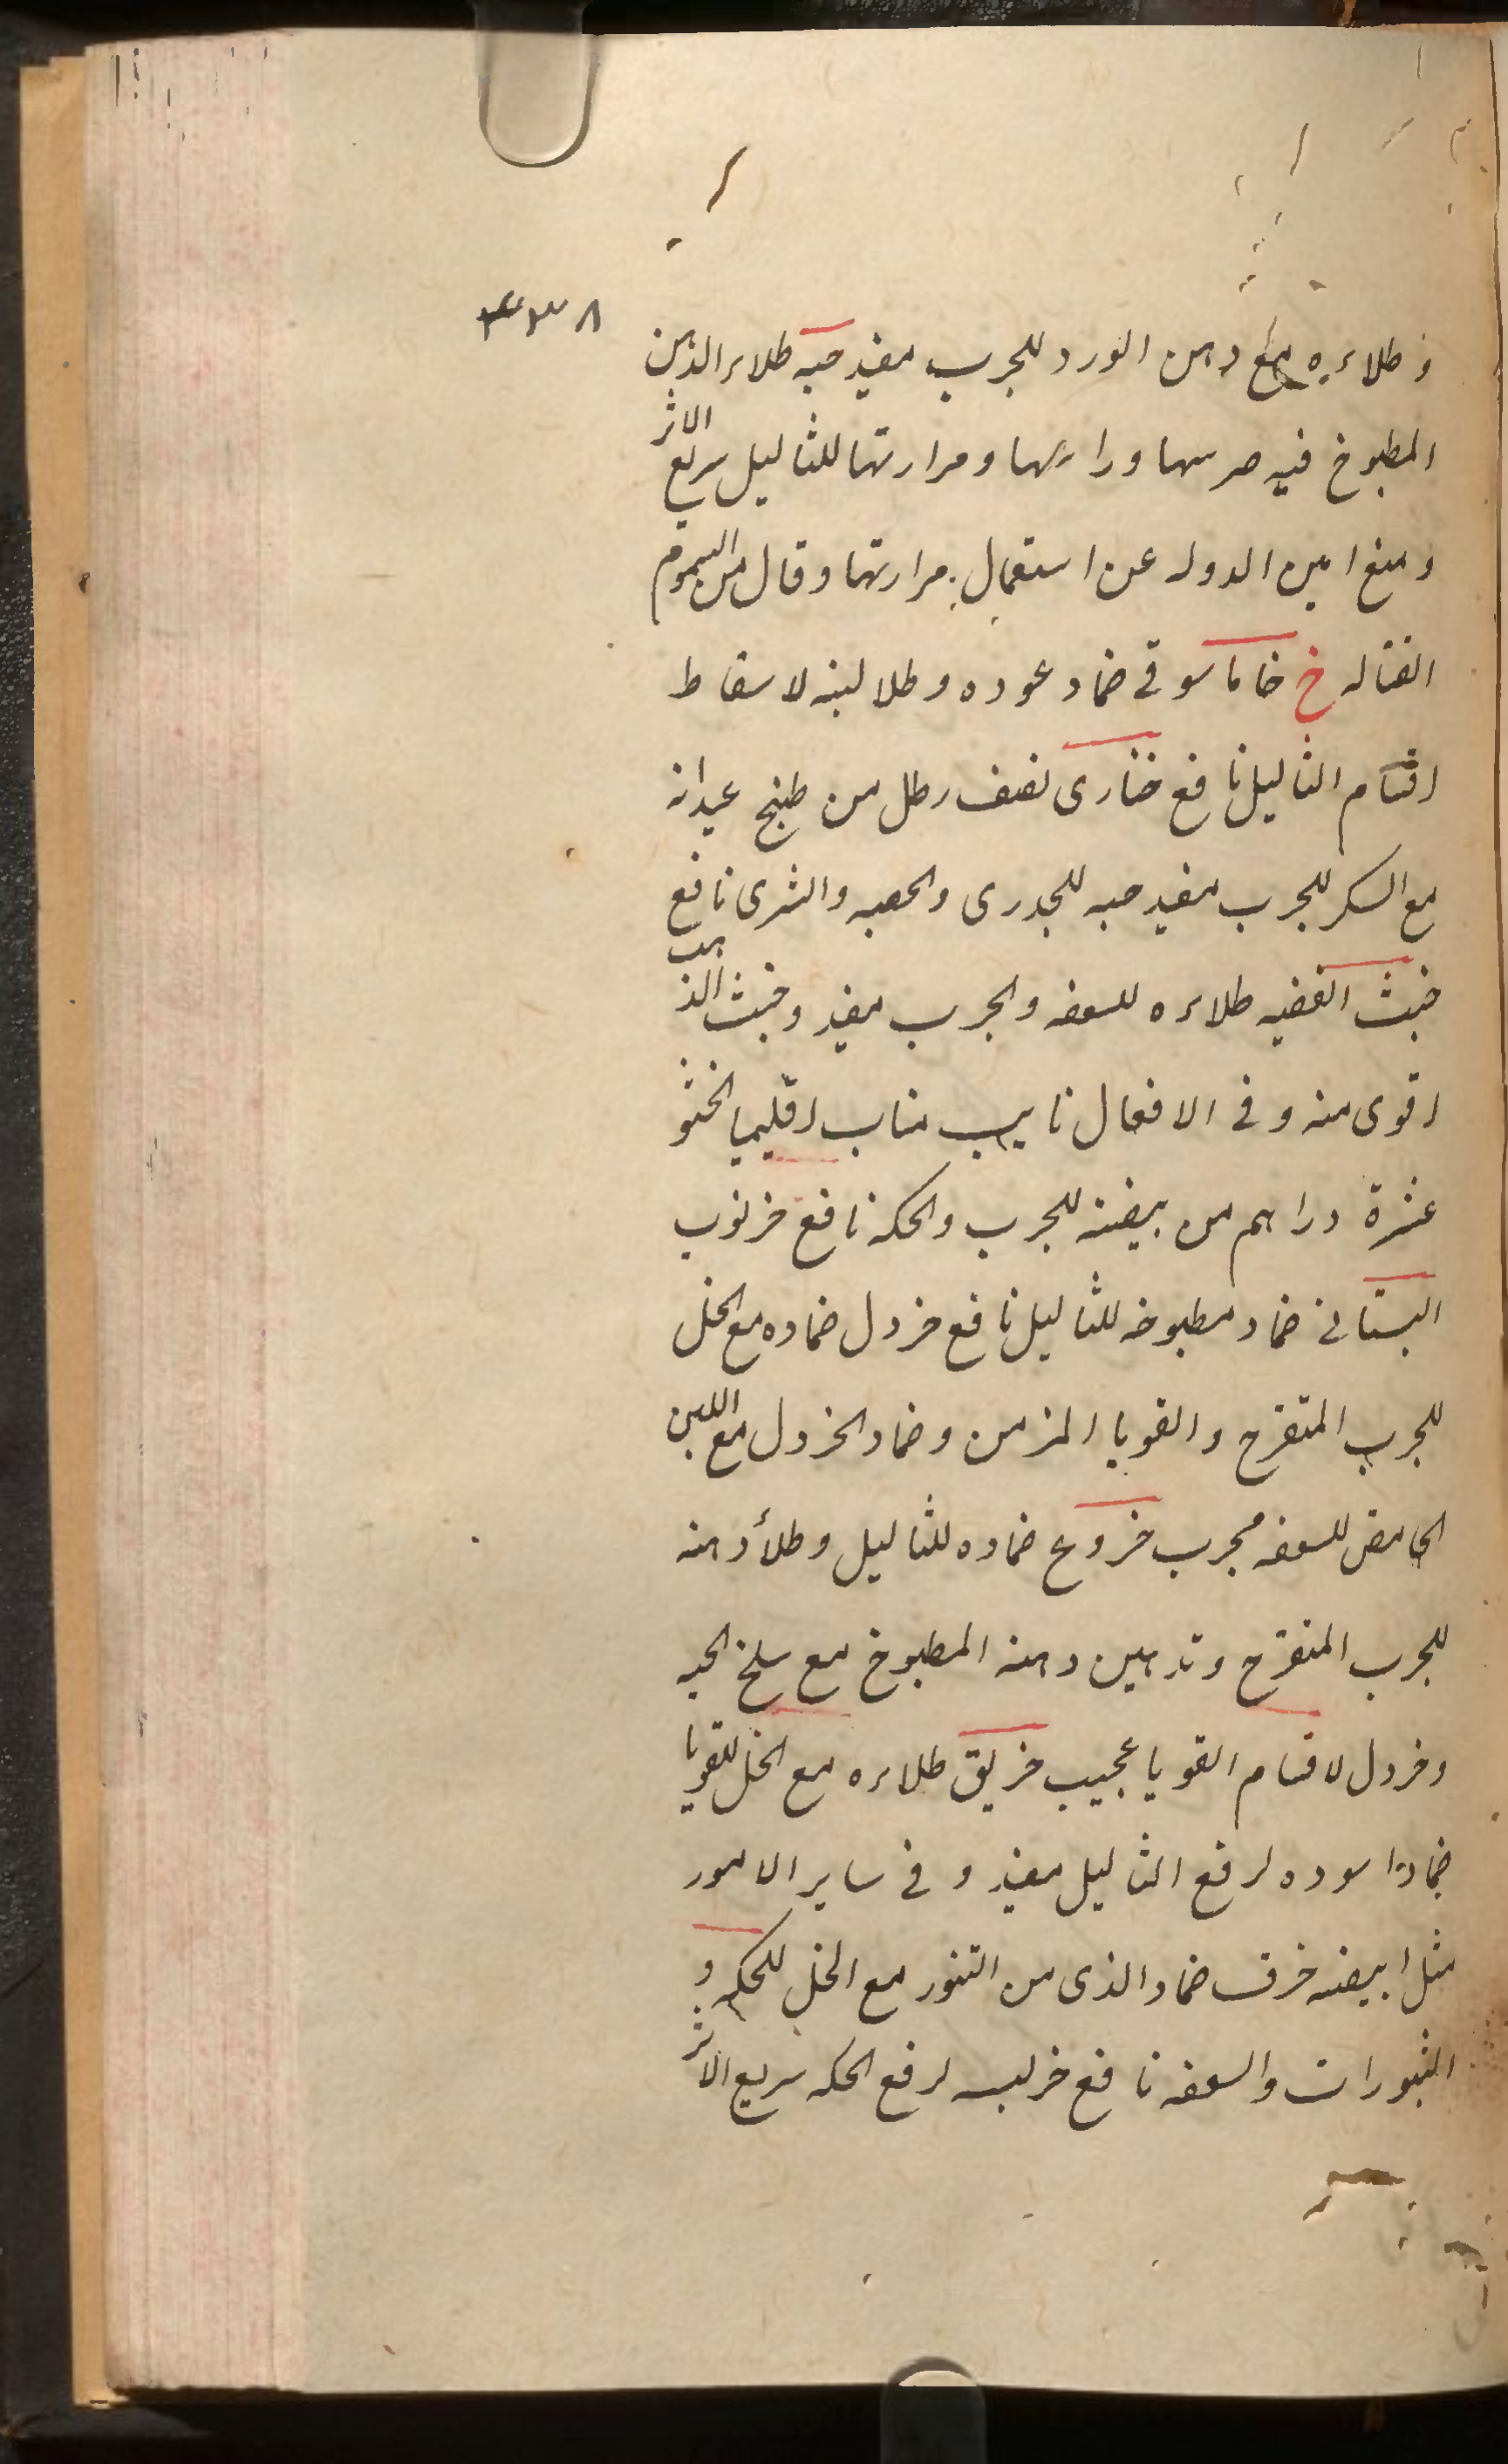 ٣٣٨
و طلاءه مع دهن الورد للجرب مفيد حيه طلاء الدهن
المطبوخ فيه ورأسها ومرارتها للثاليل سريع الاثر
ومنع امين الدوله عن استعمال مرارتها وقال من السموم
القتاله خ خاماسوقى ضماد عوده وطلا لبنه لاسقاط
اقسام الثاليل نافع نصف رطل من طبيخ عيدانه
مع السكر للجرب مفيد حبه للجدرى والحصبه والشرى نافع
خبث الفضه طلاءه للسعفه والجرب مفيد وخبث الذهب
اقوى منه وفى الافعال نايب مناب اقليميا
عشرة دراهم من بيضته للجرب والحكه نافع خرنوب
البستانى ضماد مطبوخه للثاليل نافع خردل ضماده مع الخل
للجرب المتقرح والقوبا المزمن وضماد الخردل مع اللبن
الحامض للسعفه مجرب خروع ضماده للثاليل وطلاء دهنه
للجرب المتقرح وتدهين دهنه المطبوخ مع سلخ الحيه
وخردل لاقسام القوبا عجيب خربق طلاءه مع الخل للقوبا
ضمادا سوده لرفع الثاليل مفيد وفى ساير الامور
مثل ابيضه خزف ضماد الذى من التنور مع الخل للحكه و
البثورات والسعفه نافع لرفع الحكه سريع الاثر